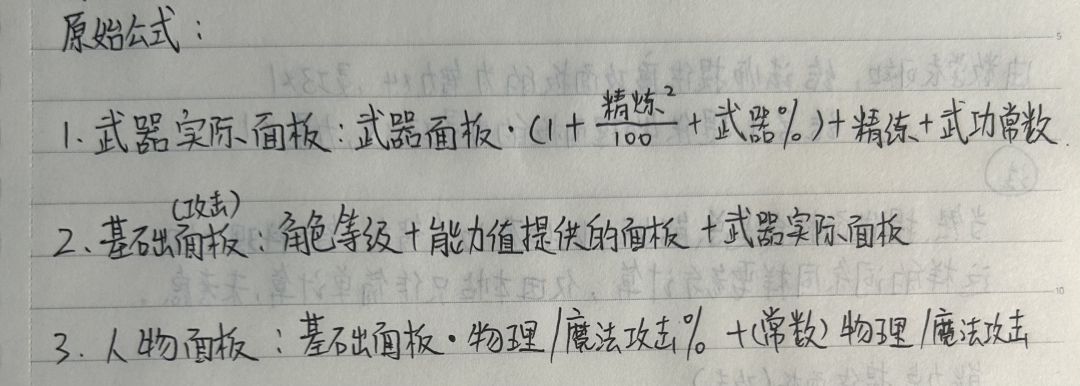 原始公式：
1. 武器实际面板：武器面板·(1+精炼²/100+武器%)+精炼+武功常数.
2、基础(攻击)面板：角色等级+能力值提供的面板+武器实际面板
3. 人物面板：基础面板·物理/魔法攻击%+(常数)物理/魔法攻击